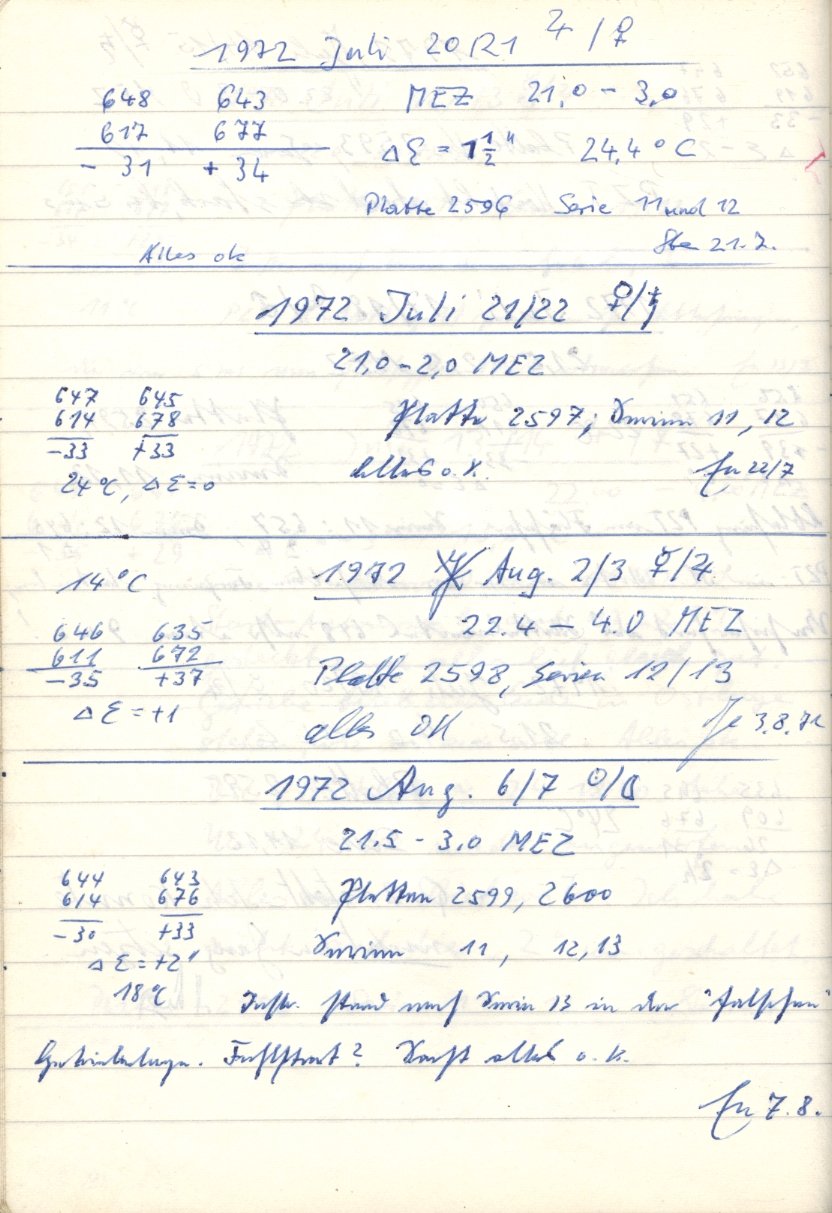 1972 Juli 20/21 ♃/♀
648 643 MEZ 21,0 – 3,0
617 677
– 31 + 34 Δξ = 1 1/2" 24,4 °C
Platte 2596 Serie 11 und 12
Alles ok 21.7.
1972 Juli 21/22 ♀/♄
21,0 – 2,0 MEZ
647 645
614 678 Platte 2597; Serien 11, 12
–33 +33
24°C, Δξ=0 alles o.K. 22/7
14°C 1972 Aug. 2/3 ☿/♃
22.4 — 4.0 MEZ
646 635
611 672
–35 +37 Platte 2598, Serien 12/13
Δξ = +1
alles OK Je 3.8.72
1972 Aug. 6/7 ☉/☽
21.5 – 3,0 MEZ
644 643
614 676 Platten 2599, 2600
–30 +33
Δξ = +2" Serien 11, 12, 13
18°C Instr. stand nach Serie 13 in der "falschen"
Getriebelage. Fehlstart? Sonst alles o.K.
7.8.